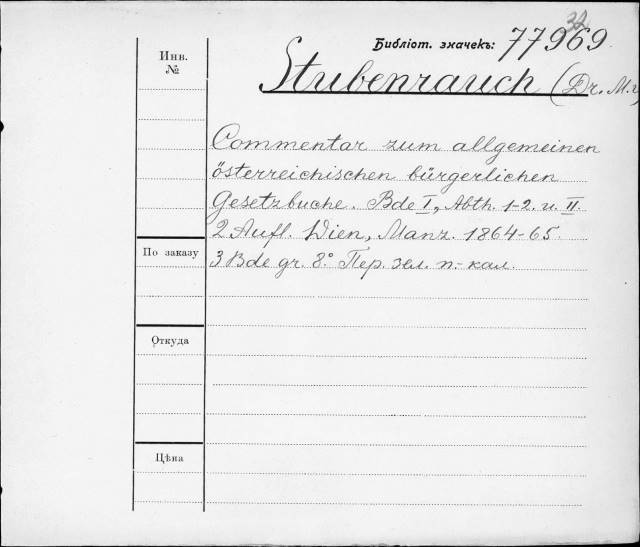 32
Библіот. значекъ: 77969
Инв. №
Stubenrauch (Dr. M. v
Commentar zum allgemeinen
österreichischen bürgerlichen
Gesetzbuche. Bde I, Abth. 1-2. u. II.
2 Aufl. Wien, Manz. 1864-65.
По заказу
3 Bde gr. 8° Пер. зел. п.- кал.
Откуда
Цѣна